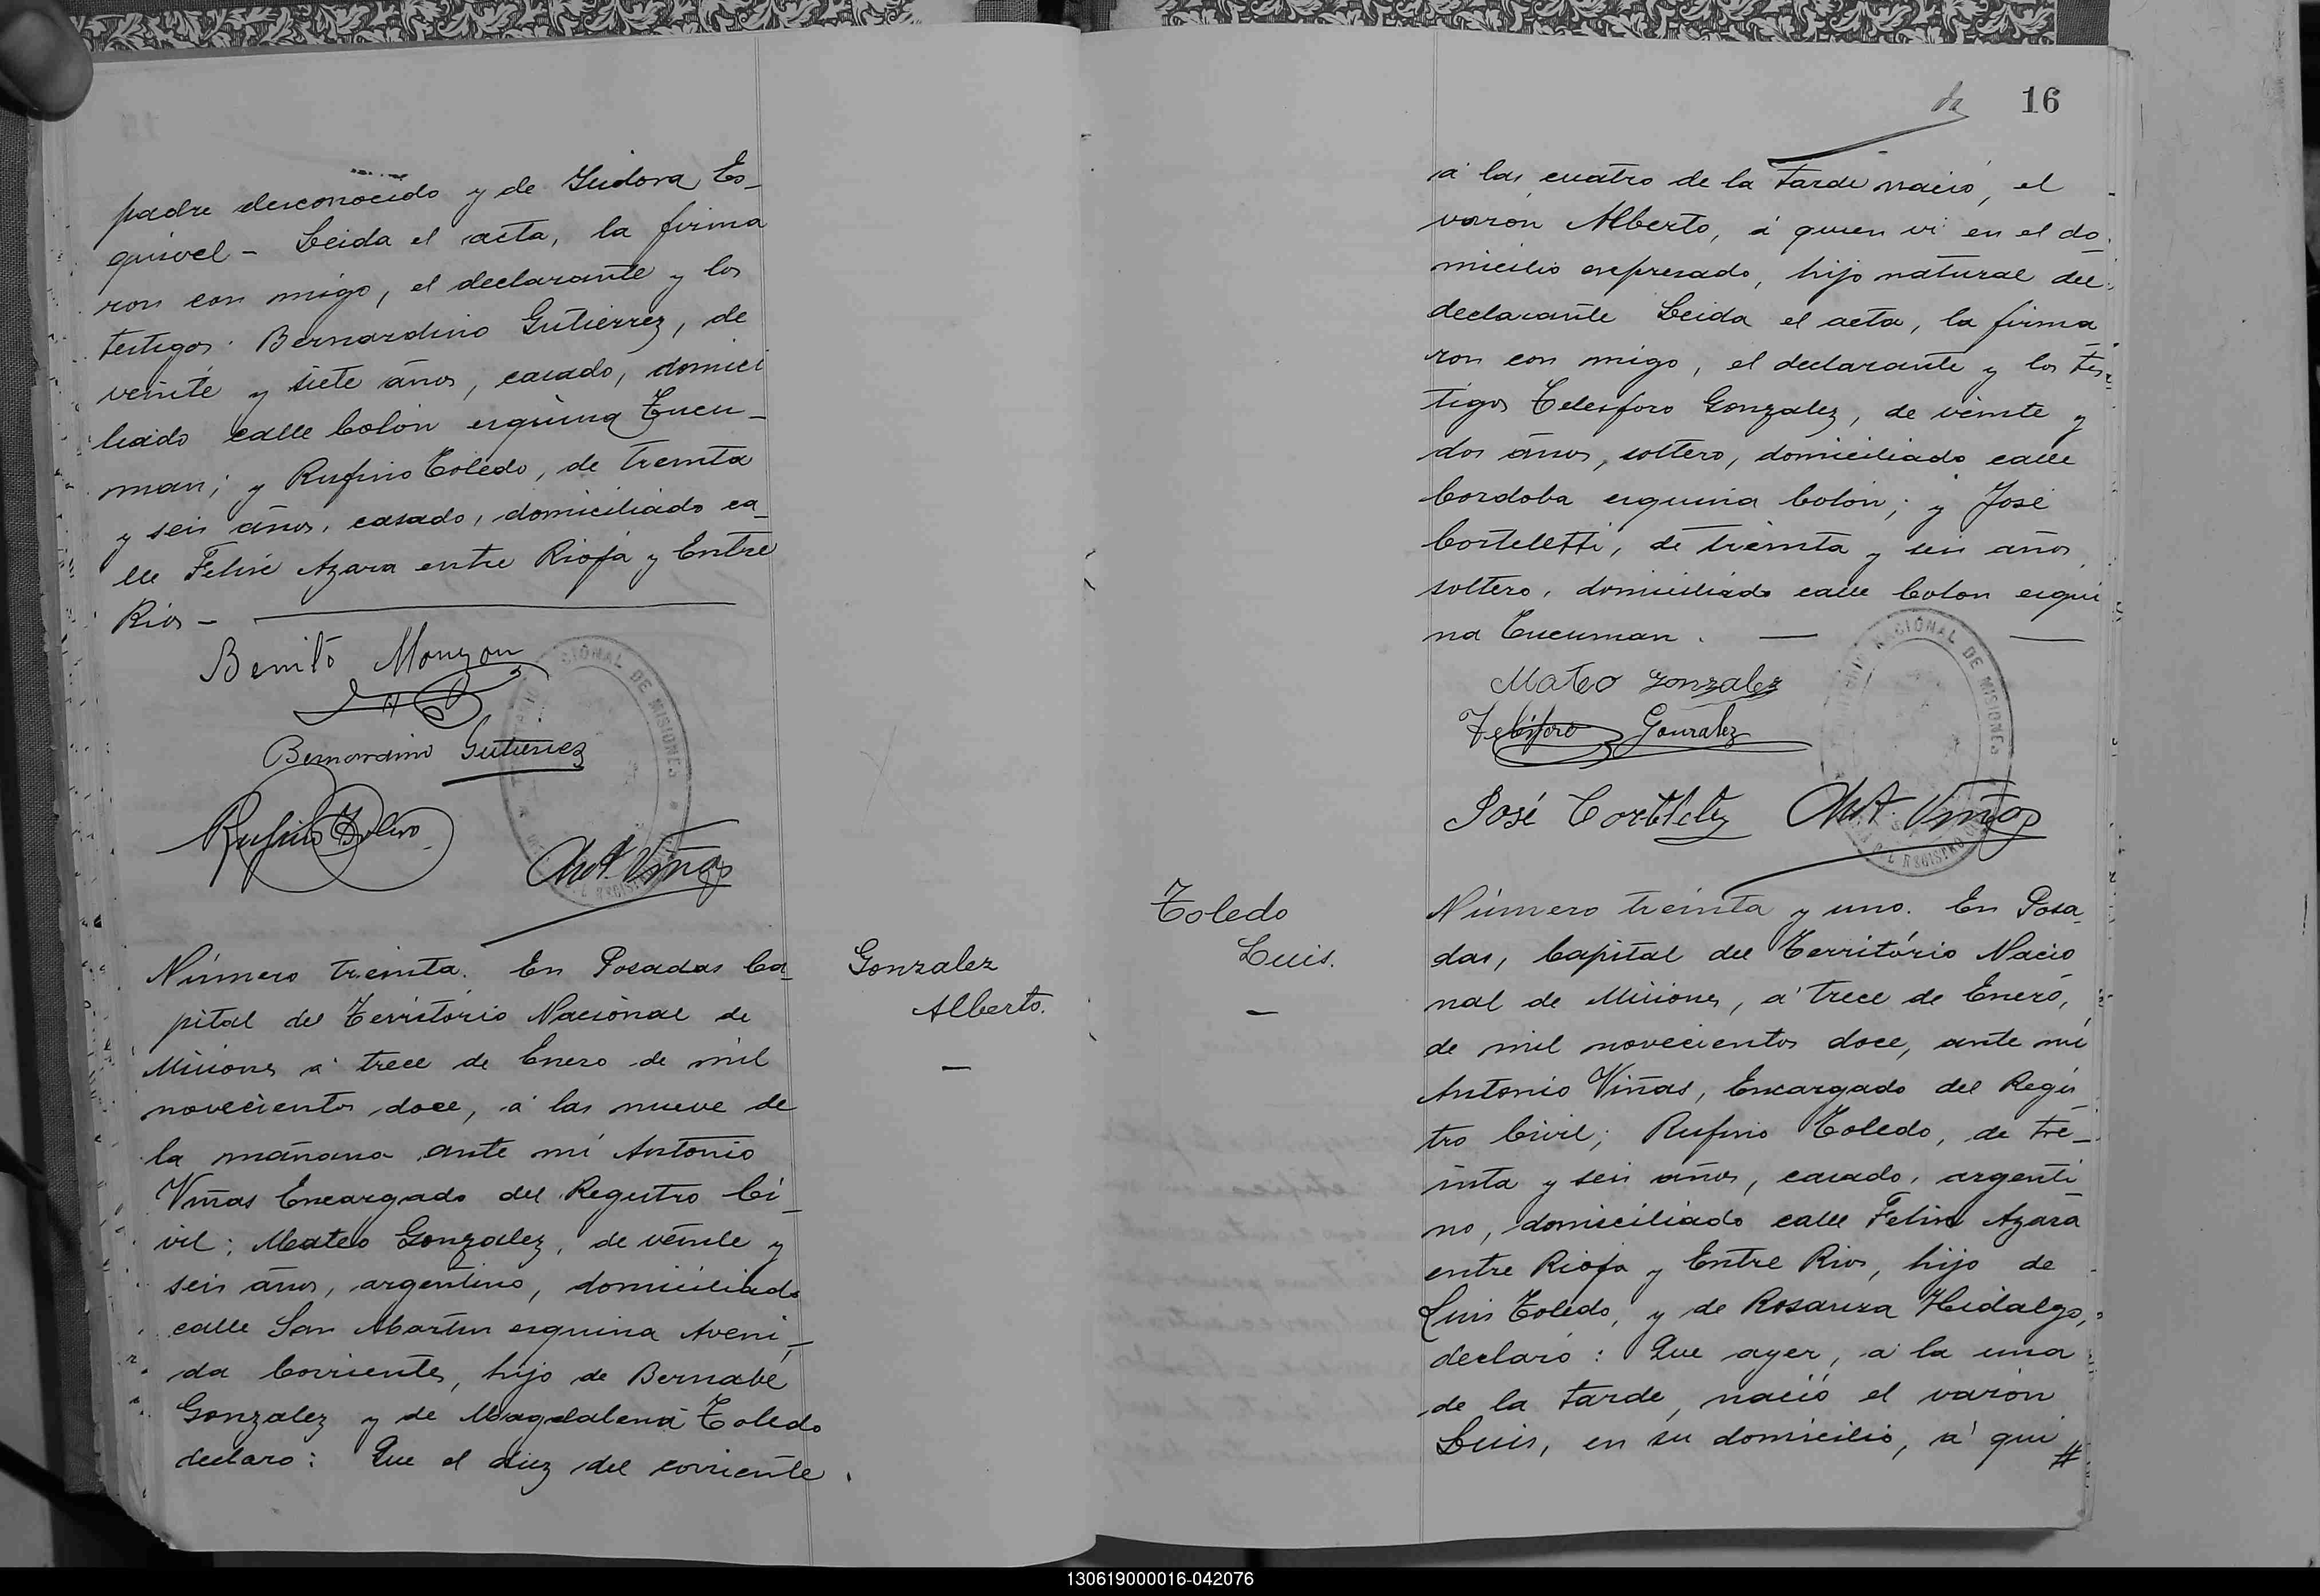 padre desconocido y de Isidora Es-
quivel - Leida el acta, la firma
ron con migo, el declarante y los
testigos: Bernardino Gutierrez, de
veinte y siete años, casado, domici
liado calle Colón esquina Tucu-
man; y Rufino Toledo, de treinta
y seis años, casado, domiciliado ca-
lle Felix Azara entre Rioja y Entre
Rios -
Benito Monzon
Bernardino Gutierrez
Rufino Toledo
Ant. Viñas
Número treinta. En Posadas Ca-
pital del Territorio Nacional de
Misiones á trece de Enero de mil
novecientos doce, á las nueve de
la mañana ante mí Antonio
Viñas Encargado del Registro Ci-
vil; Mateo Gonzalez, de veinte y
seis años, argentino, domiciliado
calle San Martin esquina Aveni-
da Corrientes, hijo de Bernabé
Gonzalez y de Magdalena Toledo
declaro: Que el diez del corriente
Gonzalez
Alberto.
16
á las cuatro de la tarde nació, el
varón Alberto, á quien vi en el do-
micilio expresado, hijo natural del
declarante Leida el acta, la firma-
ron con migo, el declarante y los tes-
tigos Telesforo Gonzalez, de veinte y
dos años, soltero, domiciliado calle
Cordoba esquina Colón; y José
Corteletti, de treinta y seis años
soltero, domiciliado calle Colon esqui
na Tucuman.
Mateo Gonzalez
Telesforo Gonzalez
José Corteletti Ant. Viñas
NACIONAL DE MISIONES
Toledo
Luis.
Número treinta y uno. En Posa-
das, Capital del Territorio Nacio
nal de Misiones, á trece de Enero,
de mil novecientos doce, ante mí
Antonio Viñas, Encargado del Regis-
tro Civil; Rufino Toledo, de tre-
inta y seis años, casado, argenti-
no, domiciliado calle Felix Azara
entre Rioja y Entre Rios, hijo de
Luis Toledo, y de Rosaura Hidalgo,
declaró: Que ayer, á la una
de la tarde, nació el varón
Luis, en su domicilio, á qui #
130619000016-042076